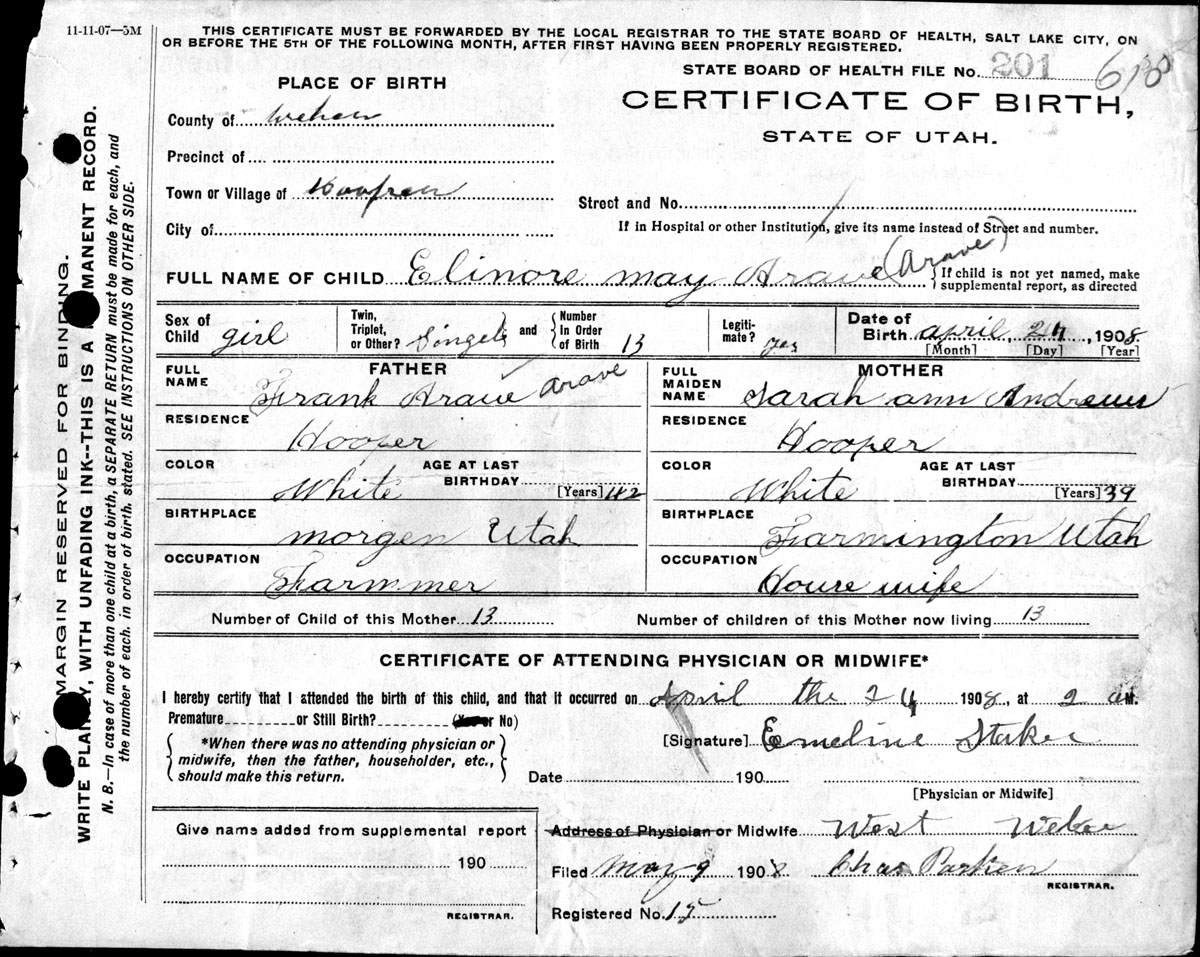 11-11-07—5M
THIS CERTIFICATE MUST BE FORWARDED BY THE LOCAL REGISTRAR TO THE STATE BOARD OF HEALTH, SALT LAKE CITY, ON
OR BEFORE THE 5TH OF THE FOLLOWING MONTH, AFTER FIRST HAVING BEEN PROPERLY REGISTERED.
STATE BOARD OF HEALTH FILE No. 201
PLACE OF BIRTH
CERTIFICATE OF BIRTH,
STATE OF UTAH.
County of Weber
Precinct of
Town or Village of Hooper
Street and No.
City of
If in Hospital or other Institution, give its name instead of Street and number.
FULL NAME OF CHILD Elinore may Arave (Arave)
{If child is not yet named, make
supplemental report, as directed
Sex of Child girl
Twin, Triplet, or Other? Singel and {Number In Order of Birth 13
Legiti- mate? yes
Date of Birth april, 24, 1908
[Month] [Day] [Year]
FATHER
FULL NAME Frank Arave Arave
RESIDENCE Hooper
COLOR White
AGE AT LAST BIRTHDAY [Years] 42
BIRTHPLACE morgen Utah
OCCUPATION Farmmer
MOTHER
FULL MAIDEN NAME Sarah ann Andrews
RESIDENCE Hooper
COLOR White
AGE AT LAST BIRTHDAY [Years] 39
BIRTHPLACE Farmington Utah
OCCUPATION House wife
Number of Child of this Mother 13 Number of children of this Mother now living 13
CERTIFICATE OF ATTENDING PHYSICIAN OR MIDWIFE*
I hereby certify that I attended the birth of this child, and that it occurred on April the 24 1908, at 2 a M.
Premature or Still Birth? (Yes or No)
{*When there was no attending physician or
midwife, then the father, householder, etc.,
should make this return.}
[Signature] Emeline Staker
Date 190
[Physician or Midwife]
Give name added from supplemental report
190
REGISTRAR.
Address of Physician or Midwife West Weber
Filed May 9 1908 Chas Parker
REGISTRAR.
Registered No. 15
MARGIN RESERVED FOR BINDING.
WRITE PLAINLY, WITH UNFADING INK--THIS IS A PERMANENT RECORD.
N. B.—In case of more than one child at a birth, a SEPARATE RETURN must be made for each, and
the number of each, in order of birth, stated. SEE INSTRUCTIONS ON OTHER SIDE.